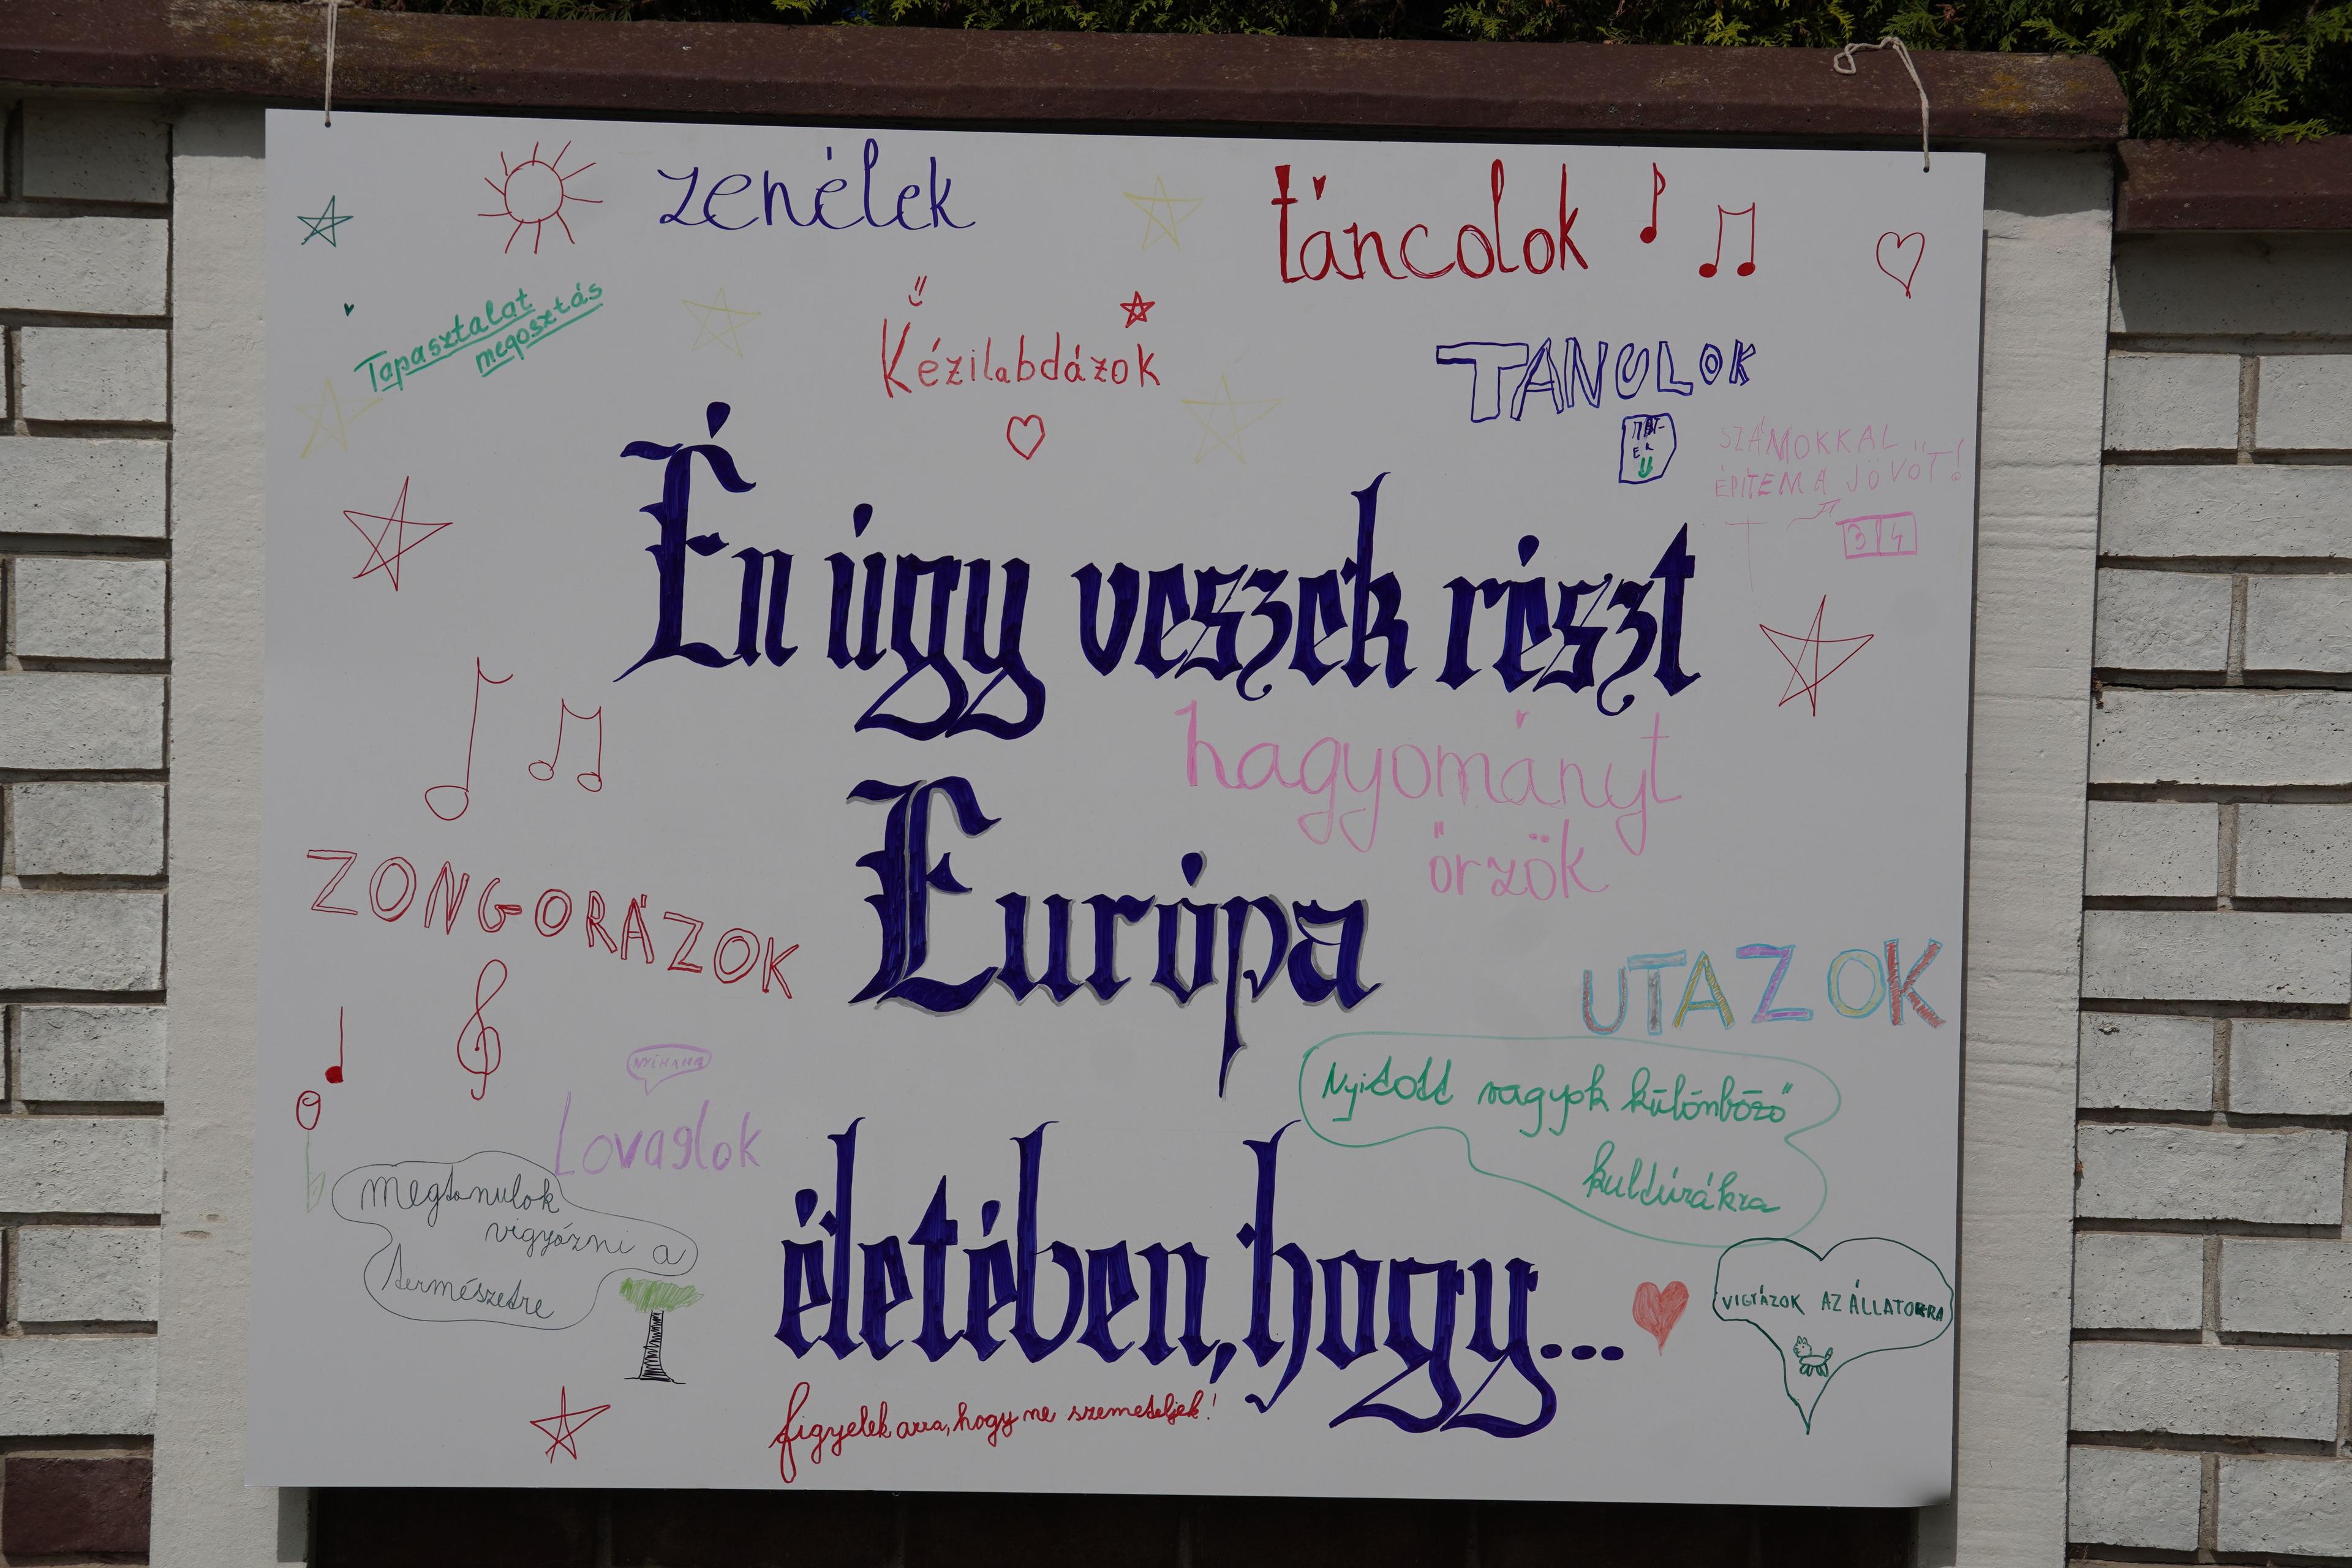 zenélek
táncolok
Tapasztalat
megosztás
Kézilabdázok
TANULOK
SZÁMOKKAL
ÉPÍTEM A JÖVŐT!
3 4
Én úgy veszek részt
hagyományt
őrzök
Európa
ZONGORÁZOK
UTAZOK
NYIHAHA
Lovaglok
Nyitott vagyok különböző
kultúrákra
megtanulok
vigyázni a
természetre
életében, hogy...
VIGYÁZOK AZ ÁLLATOKRA
figyelek arra, hogy ne szemeteljek!